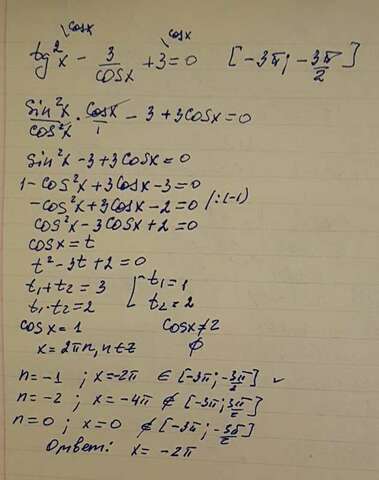 \cosx \cosx
tg²x - 3/cosx + 3 = 0 [-3π; -3π/2]
sin²x/cos²x · cosx/1 - 3 + 3cosx = 0
sin²x - 3 + 3cosx = 0
1 - cos²x + 3cosx - 3 = 0
-cos²x + 3cosx - 2 = 0 /:(-1)
cos²x - 3cosx + 2 = 0
cosx = t
t² - 3t + 2 = 0
t₁ + t₂ = 3 [ t₁ = 1
t₁ · t₂ = 2 t₂ = 2
cosx = 1 cosx ≠ 2
x = 2πn, n ∈ z ∅
n = -1 ; x = -2π ∈ [-3π; -3π/2] ✓
n = -2 ; x = -4π ∉ [-3π; 3π/2]
n = 0 ; x = 0 ∉ [-3π; -3π/2]
Ответ: x = -2π